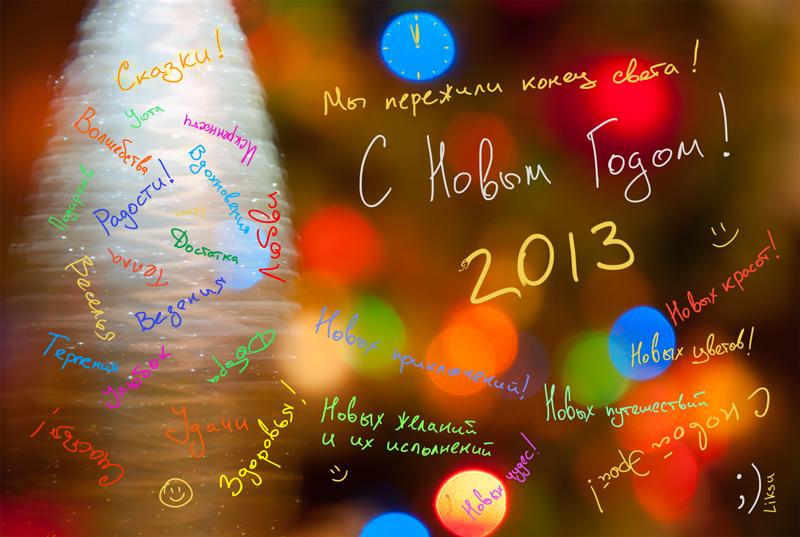 Сказки!
Уюта
Волшебства
Искренности
Вдохновения
Подарков
Радости!
Любви
Достатка
Тепла
Веселья
Везения
Терпения
Улыбок
Добра
Удачи
Здоровья!
Счастья!
Мы пережили конец света!
С Новым Годом!
2013
Новых красот!
Новых приключений!
Новых цветов!
Новых желаний
и их исполнений
Новых путешествий
С новой Эрой!
Новых чудес!
;)
Liksu